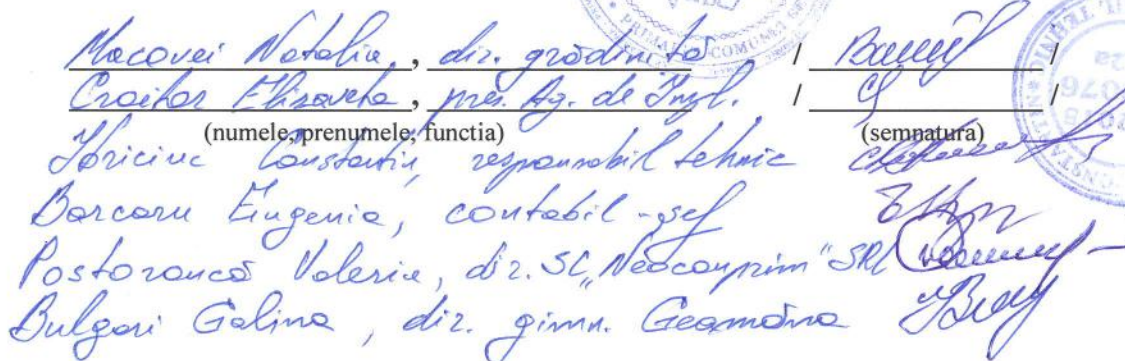 Macovei Natalia, dir. grădiniță / /
Croitor Elisaveta, pres. Ag. de Împl. / /
(numele, prenumele, functia) (semnatura)
Constantin, responsabil tehnic
Borcaru Eugenia, contabil-șef
Postoroncă Valeria, dir. SC „Neoconprim" SRL
Bulgari Galina, dir. gimn. Geamăna
PRIMĂRIA COMUNEI